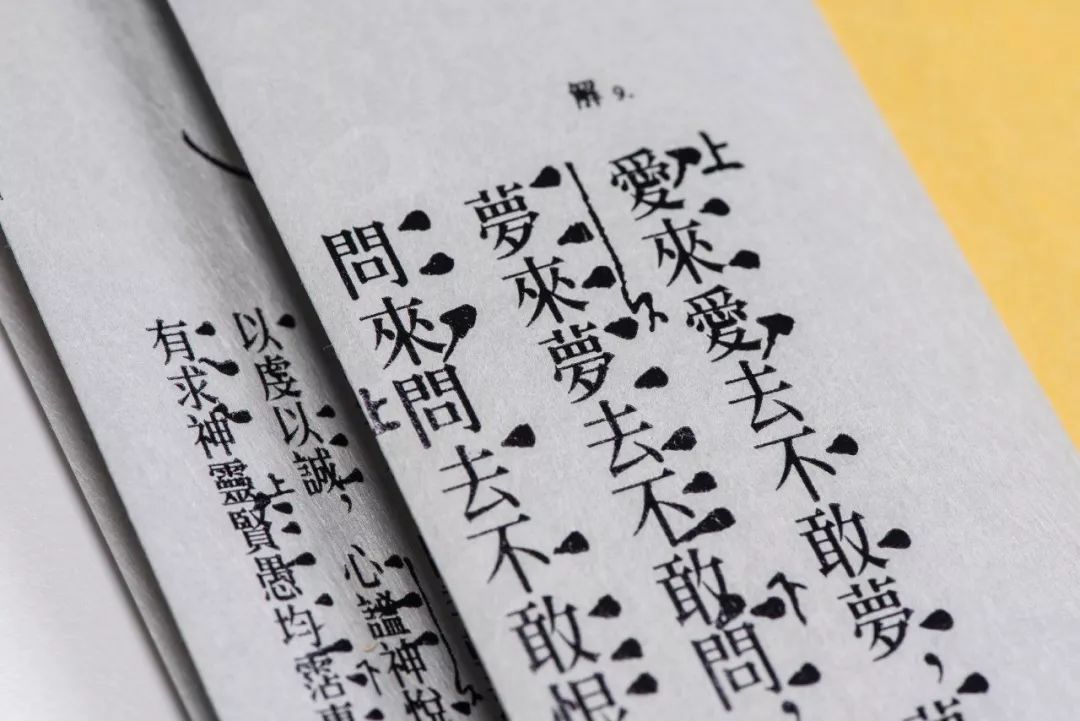 解 9.
愛來愛去不敢夢，
夢來夢去不敢問，
問來問去不敢恨
以虔以誠，心謐神悅
有求神靈賢愚均霑